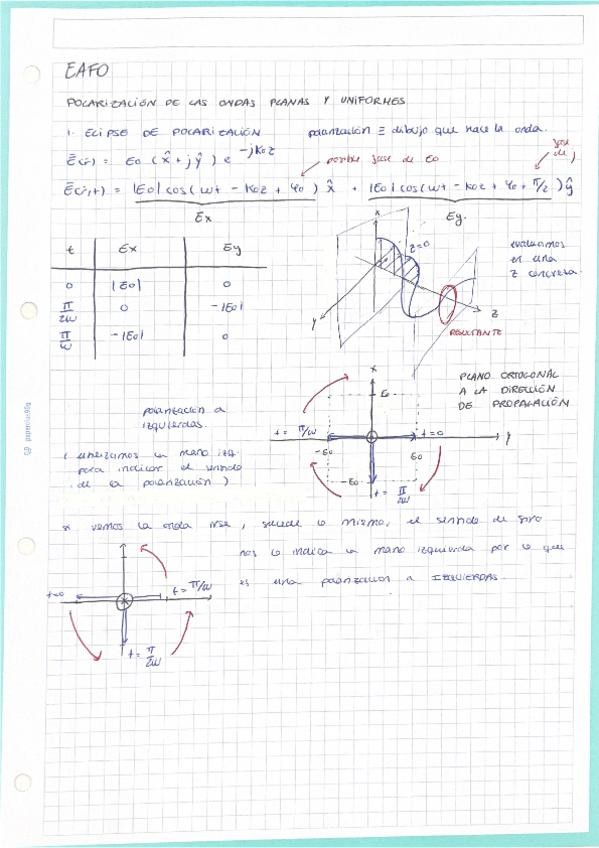 EAFO
POLARIZACIÓN DE LAS ONDAS PLANAS Y UNIFORMES
1. ECLIPSE DE POLARIZACIÓN polarización ≡ dibujo que hace la onda.
E̅(r) = E0 (x̂ + jŷ) e^-jk0z → posible fase de E0 fase de j
E̅(r,t) = |E0| cos(wt - k0z + φ0) x̂ + |E0| cos(wt - k0z + φ0 + π/2) ŷ
Ex Ey.
t Ex Ey
0 |E0| 0
π/2w 0 -|E0|
π/w -|E0| 0
x z=0 y z
RESULTANTE
evaluamos
en una
z concreta.
PLANO ORTOGONAL
A LA DIRECCIÓN
DE PROPAGACIÓN
polarización a
izquierdas.
(utilizamos la mano izq.
para indicar el sentido
de la polarización)
x
E0
t = π/w t=0 y
-E0 E0
-E0
t = π/2w
si vemos la onda irse, sucede lo mismo, el sentido de giro
nos lo indica la mano izquierda por lo que
es una polarización a IZQUIERDAS.
t=0 t = π/w
t = π/2w